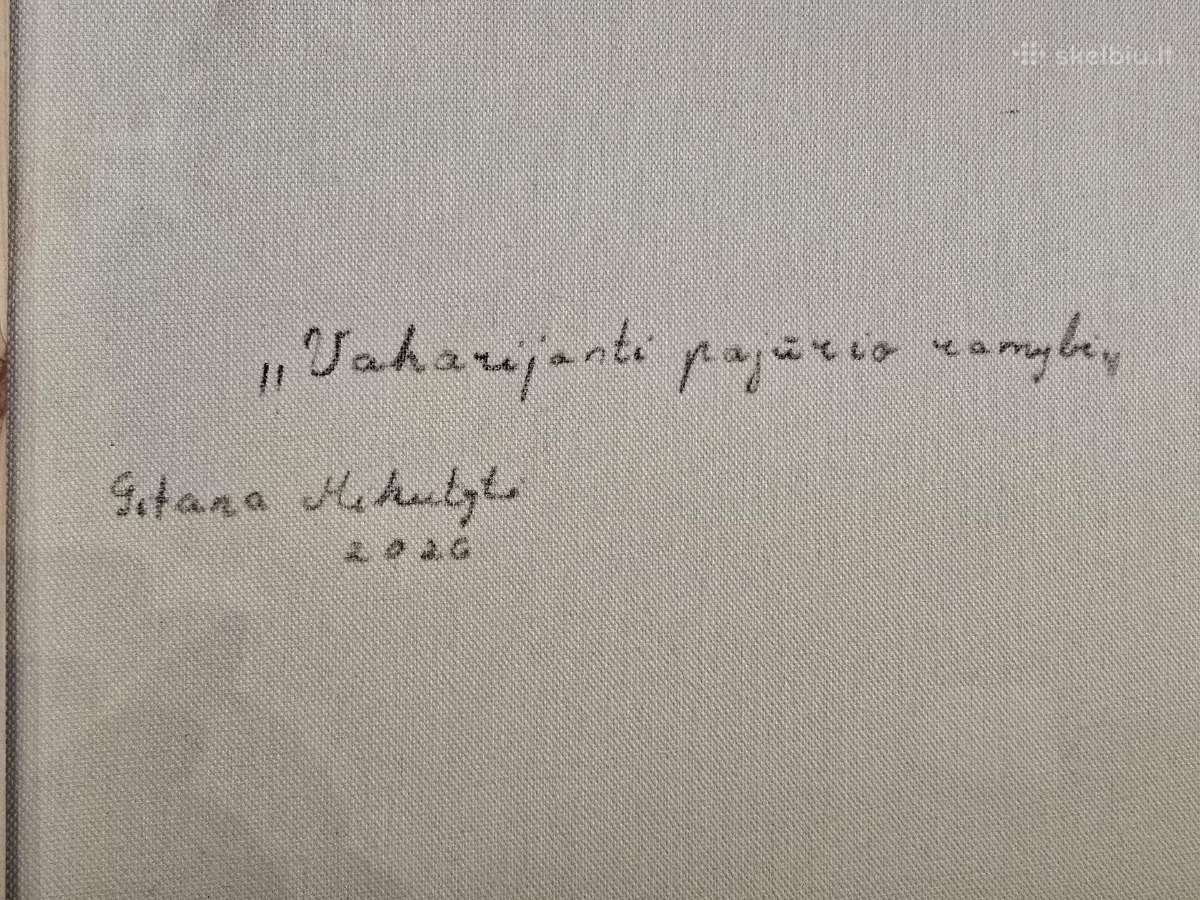 skelbiu.lt
„Vakarijanti pajūrio ramybė„
Gitana Mikutytė
2026